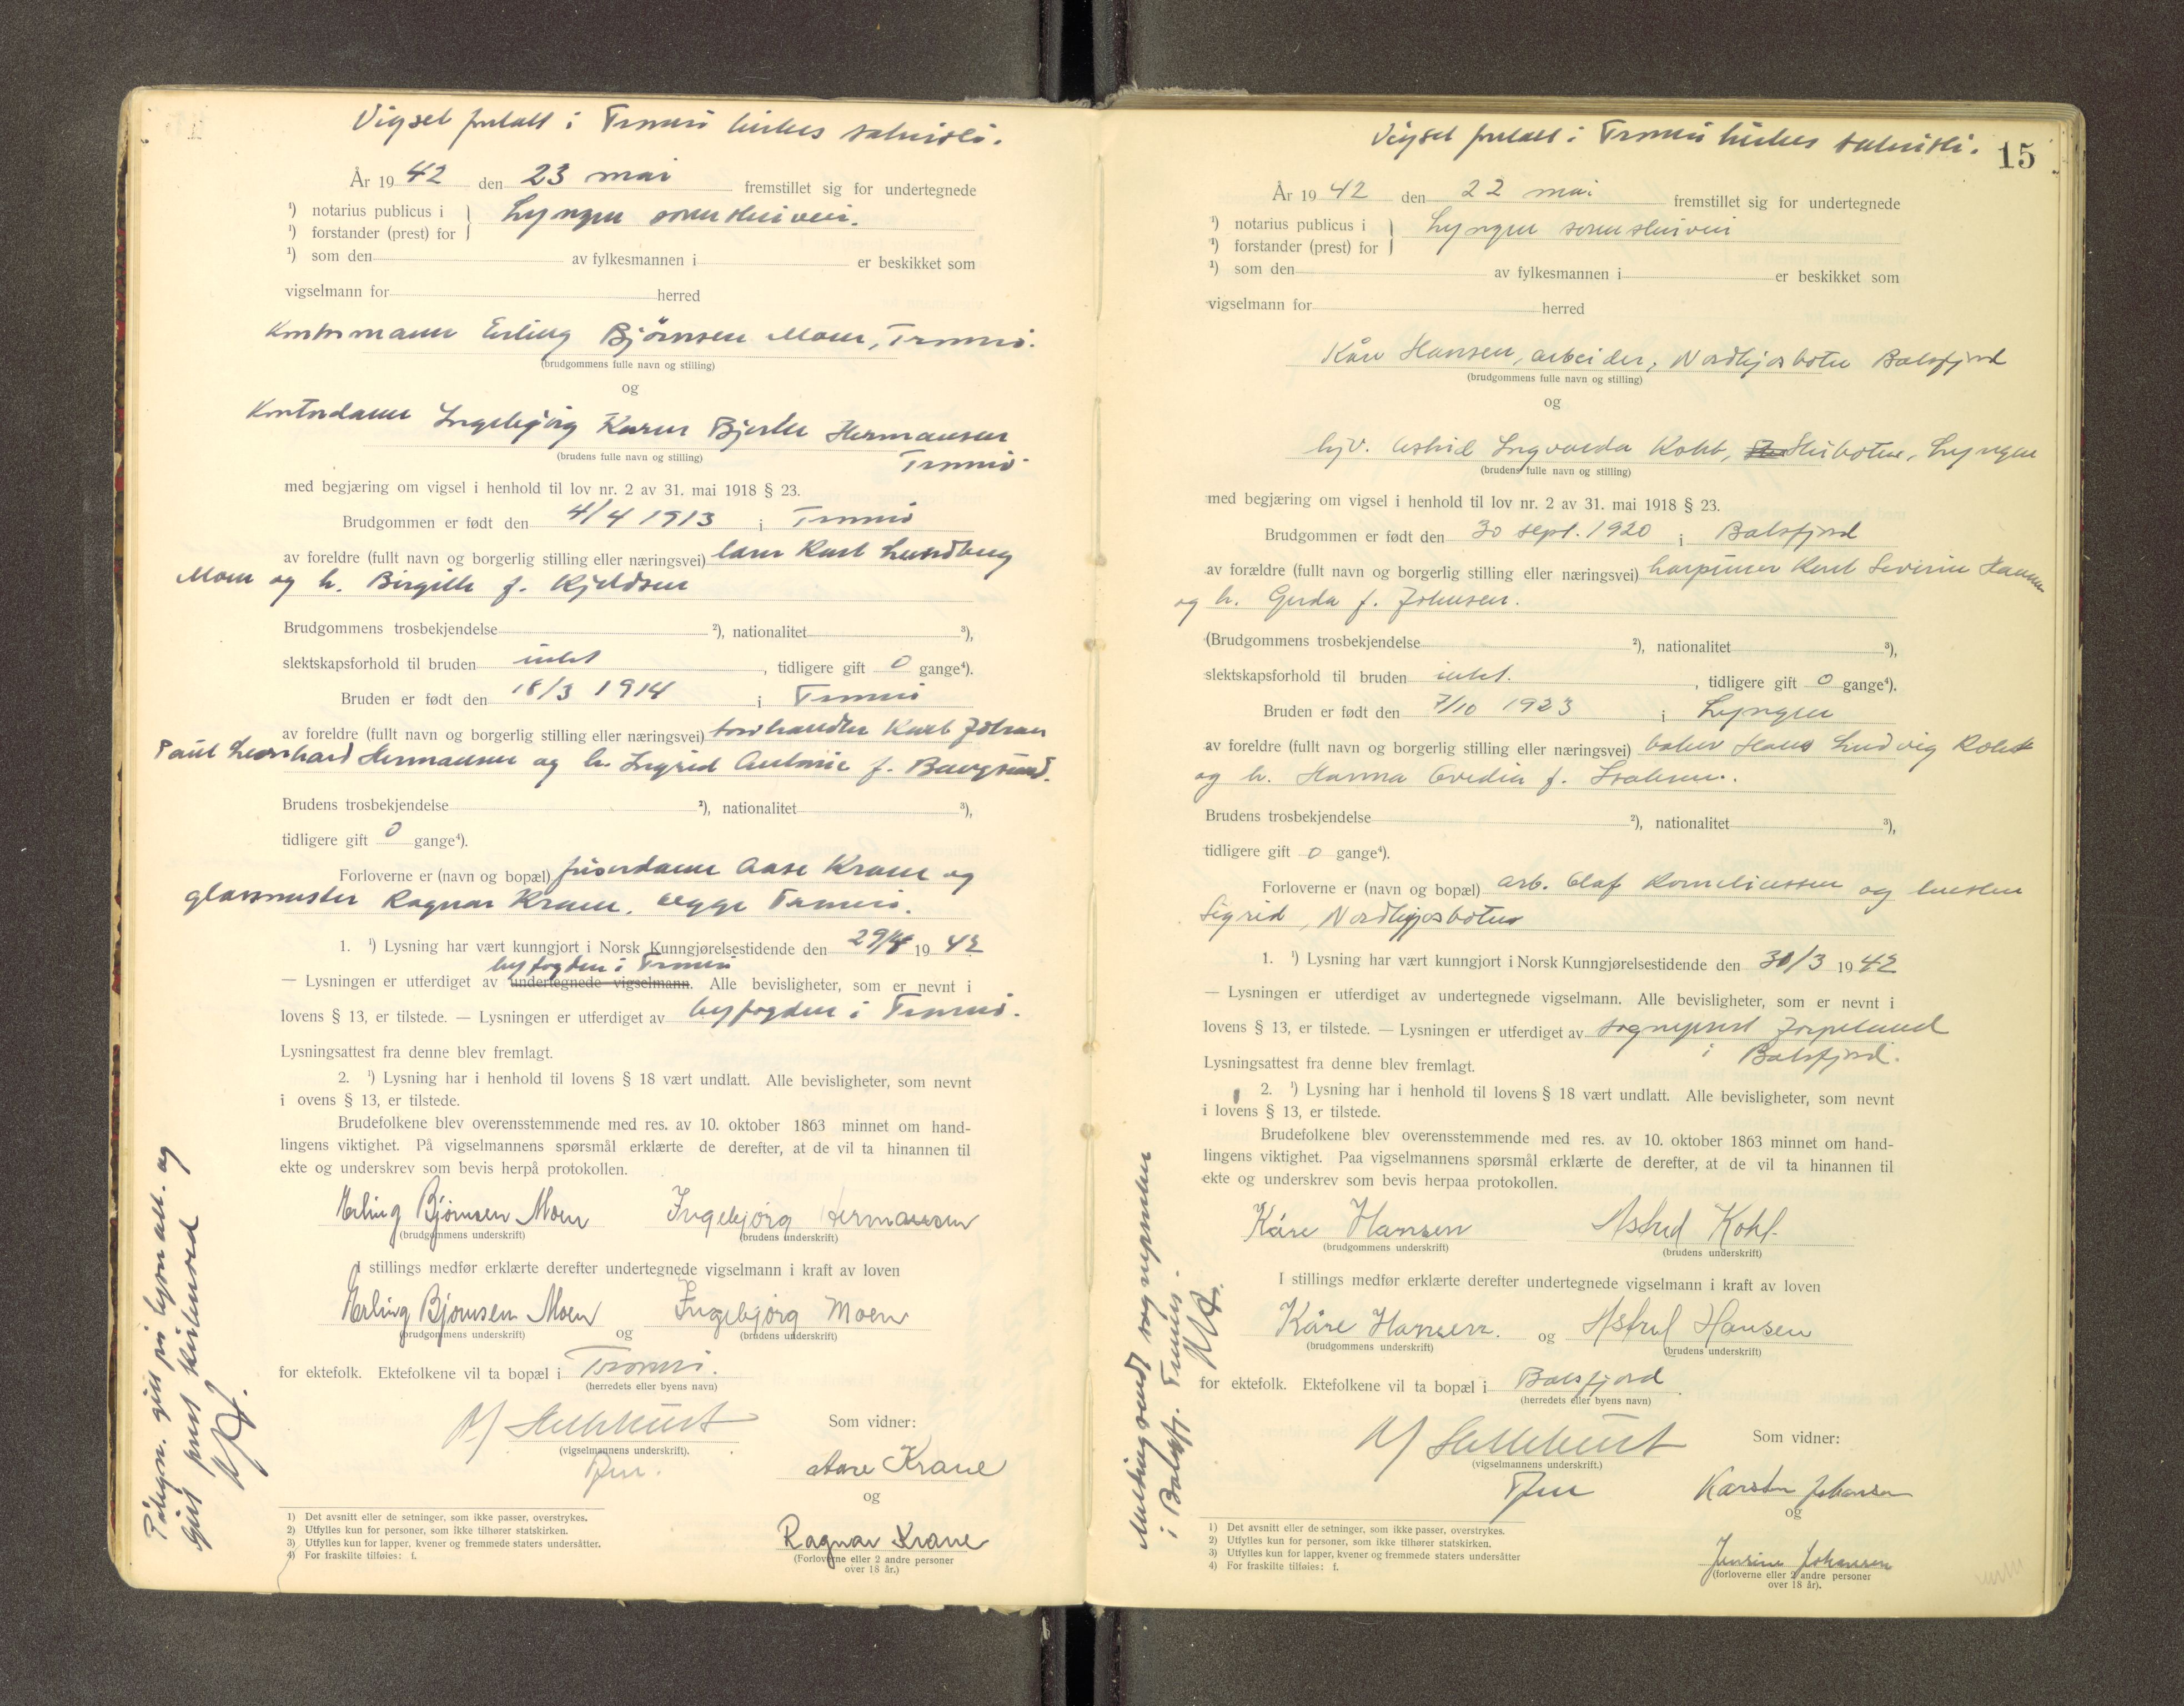 Vigsel foretatt i Tromsø kirkes sakristi.
År 1942 den 23 mai fremstillet sig for undertegnede
¹) notarius publicus i } Lyngen sorenskriveri.
¹) forstander (prest) for
¹) som den av fylkesmannen i er beskikket som
vigselmann for herred
Kontormann Erling Bjørnsen Moen, Tromsø.
(brudgommens fulle navn og stilling)
og
Kontordame Ingebjørg Karen Bjerke Hermansen
(brudens fulle navn og stilling) Tromsø
med begjæring om vigsel i henhold til lov nr. 2 av 31. mai 1918 § 23.
Brudgommen er født den 4/4 1913 i Tromsø
av foreldre (fullt navn og borgerlig stilling eller næringsvei) Karl Lundberg
Moen og h. Birgitte f. Kjeldsen
Brudgommens trosbekjendelse ²), nationalitet ³),
slektskapsforhold til bruden intet, tidligere gift 0 gange⁴).
Bruden er født den 18/3 1914 i Tromsø
av foreldre (fullt navn og borgerlig stilling eller næringsvei) Karl Johan
Paul Leonhard Hermansen og h. Ingrid Antonie f.
Brudens trosbekjendelse ²), nationalitet ³),
tidligere gift 0 gange⁴).
Forloverne er (navn og bopæl) frisørdame Aase Krane og
glassmester Ragnar Krane, begge Tromsø.
1. ¹) Lysning har vært kunngjort i Norsk Kunngjørelsestidende den 29/4 1942
byfogden i Tromsø
— Lysningen er utferdiget av undertegnede vigselmann. Alle bevisligheter, som er nevnt i
lovens § 13, er tilstede. — Lysningen er utferdiget av byfogden i Tromsø.
Lysningsattest fra denne blev fremlagt.
2. ¹) Lysning har i henhold til lovens § 18 vært undlatt. Alle bevisligheter, som nevnt
i ovens § 13, er tilstede.
Brudefolkene blev overensstemmende med res. av 10. oktober 1863 minnet om hand-
lingens viktighet. På vigselmannens spørsmål erklærte de derefter, at de vil ta hinannen til
ekte og underskrev som bevis herpå protokollen.
Erling Bjørnsen Moen Ingebjørg Hermansen
(brudgommens underskrift) (brudens underskrift)
I stillings medfør erklærte derefter undertegnede vigselmann i kraft av loven
Erling Bjørnsen Moen og Ingebjørg Moen
(brudgommens underskrift) (brudens underskrift)
for ektefolk. Ektefolkene vil ta bopæl i Tromsø.
(herredets eller byens navn)
Som vidner:
(vigselmannens underskrift).
Aase Krane
og
Ragnar Krane
(Forloverne eller 2 andre personer
over 18 år.)
1) Det avsnitt eller de setninger, som ikke passer, overstrykes.
2) Utfylles kun for personer, som ikke tilhører statskirken.
3) Utfylles kun for lapper, kvener og fremmede staters undersåtter.
4) For fraskilte tilføies: f.
15
Vigsel foretatt i Tromsø kirkes sakristi.
År 1942 den 22 mai fremstillet sig for undertegnede
¹) notarius publicus i } Lyngen sorenskriveri
¹) forstander (prest) for
¹) som den av fylkesmannen i er beskikket som
vigselmann for herred
Kåre Hansen, arbeider, Nordkjosbotn Balsfjord
(brudgommens fulle navn og stilling)
og
Astrid Ingvarda Koht, Skibotn, Lyngen
(brudens fulle navn og stilling)
med begjæring om vigsel i henhold til lov nr. 2 av 31. mai 1918 § 23.
Brudgommen er født den 30 sept. 1920 i Balsfjord
av forældre (fullt navn og borgerlig stilling eller næringsvei) Karl Severin Hansen
og h. Gerda f. Johnsen.
(Brudgommens trosbekjendelse ²), nationalitet ³),
slektskapsforhold til bruden intet., tidligere gift 0 gange⁴).
Bruden er født den 7/10 1923 i Lyngen
av foreldre (fullt navn og borgerlig stilling eller næringsvei) baker Hans Ludvig Koht
og h. Hanna Ovedia f. Isaksen.
Brudens trosbekjendelse ²), nationalitet ³),
tidligere gift 0 gange⁴).
Forloverne er (navn og bopæl) arb. Olaf Korneliussen og hustru
Sigrid, Nordkjosbotn
1. ¹) Lysning har vært kunngjort i Norsk Kunngjørelsestidende den 30/3 1942
— Lysningen er utferdiget av undertegnede vigselmann. Alle bevisligheter, som er nevnt i
lovens § 13, er tilstede. — Lysningen er utferdiget av sogneprest Jørpeland
i Balsfjord.
Lysningsattest fra denne blev fremlagt.
2. ¹) Lysning har i henhold til lovens § 18 vært undlatt. Alle bevisligheter, som nevnt
i lovens § 13, er tilstede.
Brudefolkene blev overensstemmende med res. av 10. oktober 1863 minnet om hand-
lingens viktighet. Paa vigselmannens spørsmål erklærte de derefter, at de vil ta hinannen til
ekte og underskrev som bevis herpaa protokollen.
Kåre Hansen Astrid Koht
(brudgommens underskrift) (brudens underskrift)
I stillings medfør erklærte derefter undertegnede vigselmann i kraft av loven
Kåre Hansen. og Astrid Hansen
(brudgommens underskrift) (brudens underskrift)
for ektefolk. Ektefolkene vil ta bopæl i Balsfjord
(herredets eller byens navn)
Som vidner:
(vigselmannens underskrift.)
Karsten Johansen
og
Jensine Johansen
(forloverne eller 2 andre personer
over 18 år).
1) Det avsnitt eller de setninger, som ikke passer, overstrykes.
2) Utfylles kun for personer, som ikke tilhører statskirken.
3) Utfylles kun for lapper, kvener og fremmede staters undersåtter
4) For fraskilte tilføies: f.
Melding sendt sognepresten
i Balsfj.